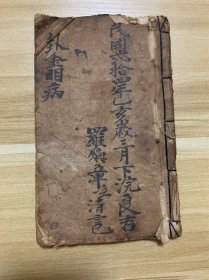 民國貳拾四年乙亥歲三月下浣良吉
羅 章 清言
外全眼病